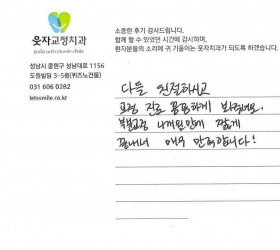 소중한 후기 감사드립니다.
함께 할 수 있었던 시간에 감사하며,
환자분들의 소리에 귀 기울이는 웃자치과가 되도록 하겠습니다.
웃자교정치과
smile orthodontic clinic
성남시 중원구 성남대로 1156
도원빌딩 3-5층(퀴즈노건물)
031 606 0282
letssmile.co.kr
다들 친절하시고
교정 진료 꼼꼼하게 봐주셔요.
부분교정 나개월만에 짧게
끝내서 매우 만족합니다!